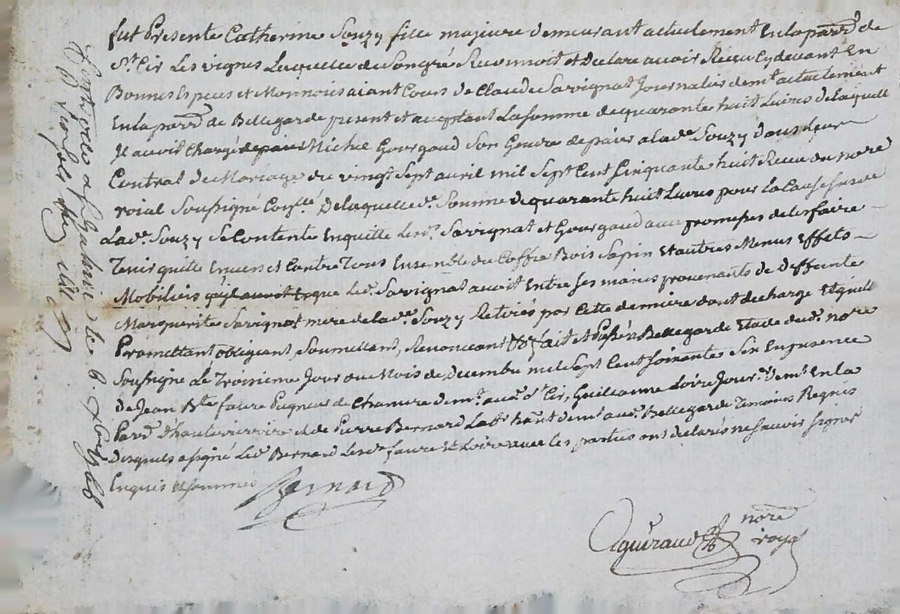 fut Presente Catherine Souzy fille majeure demeurant actuelement En la parr.e de
St Cir Les vignes Laquelle de Son gré Reconnoit et declare avoir Recu Cy devant En
Bonnes Especes et Monnois aiant Cours de Claude Savignat Journalié dem.t actuelement
En la parr.e de Bellegarde present et acceptant La Somme de quarante huit Livres de laquelle
Il avoit Chargé Michel Gourgaud Son Gendre de paier a la d.e Souzy dans leur
Contrat de Mariage du vingt Sept avril mil Sept Cent Cinquante huit Recu du no.re
roial Soussigné Con.llé De laquelle d.e Somme de quarante huit Livres pour la Cause
La d.e Souzy Se Contente En quitte Les d. Savignat et Gourgaud aux promesses de les faire
Tenir quitte Envers et Contre Tous Ensemble du Coffre Bois Sapin et autres Menus Effets
Mobiliers que Le d. Savignat avoit Entre Ses mains provenants de deffunte
Marguerite Savignat mere de la d.e Souzy Retirés par Cette derniere dont decharge Et quitt
Promettant obligeant, Soumettant, Renonceant &c fait et Passé a Bellegarde Etude du d. no.re
Soussigné Le Troisieme Jour du Mois de Decembre mil Sept Cent Soixante Six En presence
de Jean B.te faure Pigneur de Chanvre dem.t au d. St Cir, Guillaume Loire Jour.r dem.t En la
Parr.e d'hauterivoire et de Pierre Bernard Lab.r hab.t dem.t au d. Bellegarde Temoins Requis
Desquels a Signé Le d. Bernard Les d. faure et Loire avec les parties ont declarés ne Savoir Signer
Enquis et Sommés
Bernard
Aguiraud
no.re
royal